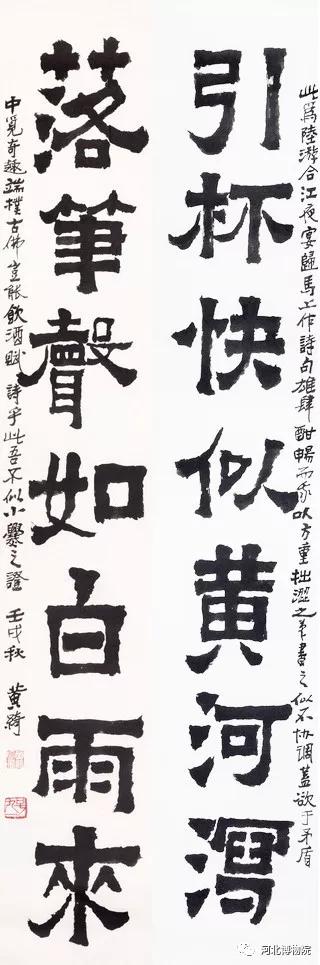 引杯快似黄河瀉
落筆聲如白雨來
此為陸游合江夜宴歸馬上作詩句雄肆酣暢而以方重拙澀之筆書之似不协調蓋欲于矛盾
中覓奇趣端樸古佛豈能飲酒賦詩乎此吾不似小爨之證 壬戌秋 黄綺
河北博物院